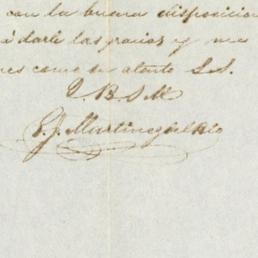 con la buena disposicion
á darle las gracias y me
nes como su atento S.S.
Q. B. S. M.
J. Martinez del Rio